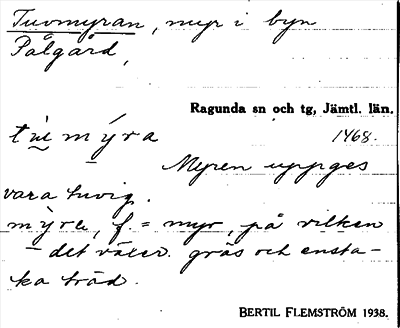 Tuvmyran, myr i byn
Pålgård,
Ragunda sn och tg, Jämtl. län.
1468.
Myren uppges
vara tuvig.
mýra, f. = myr, på vilken
det växer gräs och ensta-
ka träd.
BERTIL FLEMSTRÖM 1938.